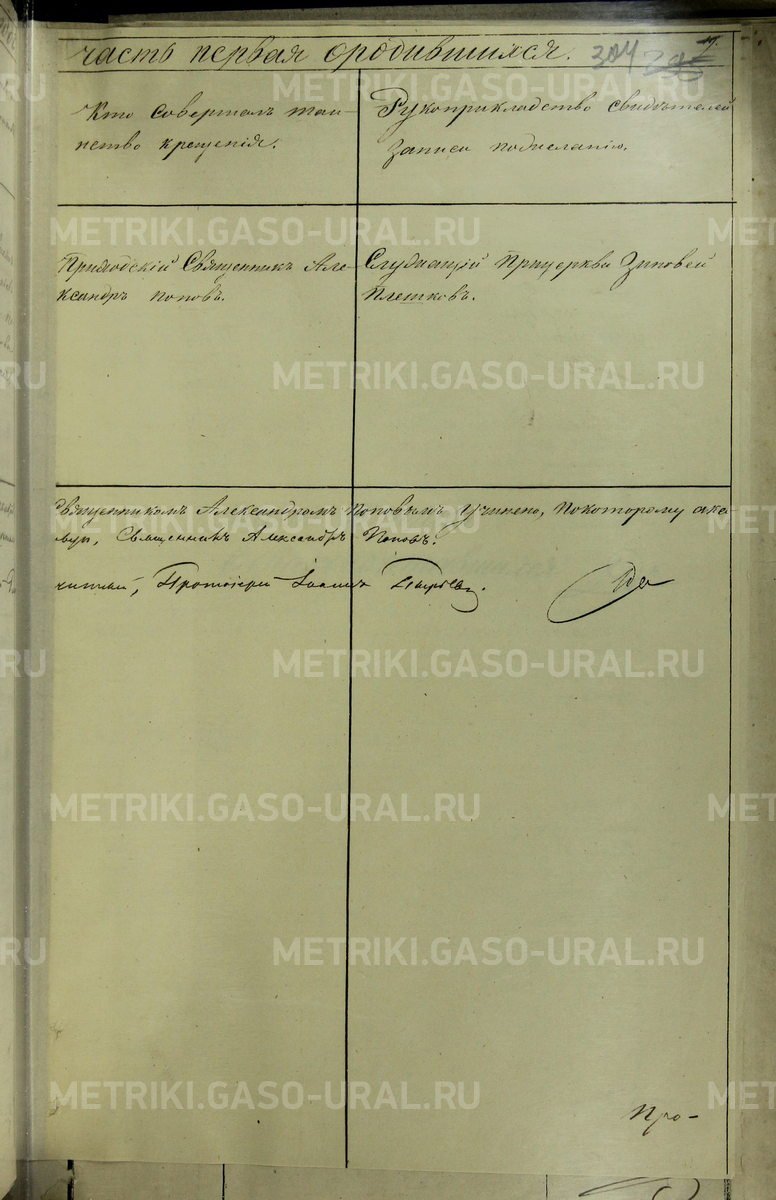 часть первая ородившихся. 304
Кто совершалъ таи-
нство крещенія.
Рукоприкладство свидѣтелей
записи пожеланію.
Приходскій Священникъ Але-
ксандръ Поповъ.
Служащій Прицеркви Зиновей
Плешковъ.
Священникомъ Александромъ Поповымъ Учинено, Покоторому ока-
Священникъ Александръ Поповъ.
читалъ, Протоіерей Іоаннъ
Про-
METRIKI.GASO-URAL.RU